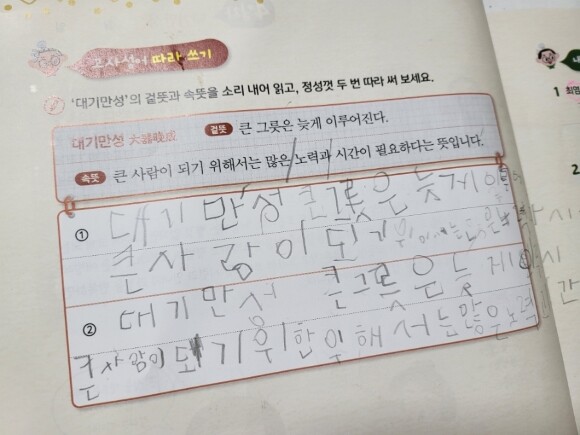 고사성어 따라 쓰기
'대기만성'의 겉뜻과 속뜻을 소리 내어 읽고, 정성껏 두 번 따라 써 보세요.
대기만성 大器晩成 겉뜻 큰 그릇은 늦게 이루어진다.
속뜻 큰 사람이 되기 위해서는 많은 노력과 시간이 필요하다는 뜻입니다.
① 대기 만성 큰 그릇은 늦게 이
큰 사람이 되기 위
② 대기만성 큰 그릇은 늦게
큰 사람이 되기 위한 위해서는 많은 노력
1 최영
2